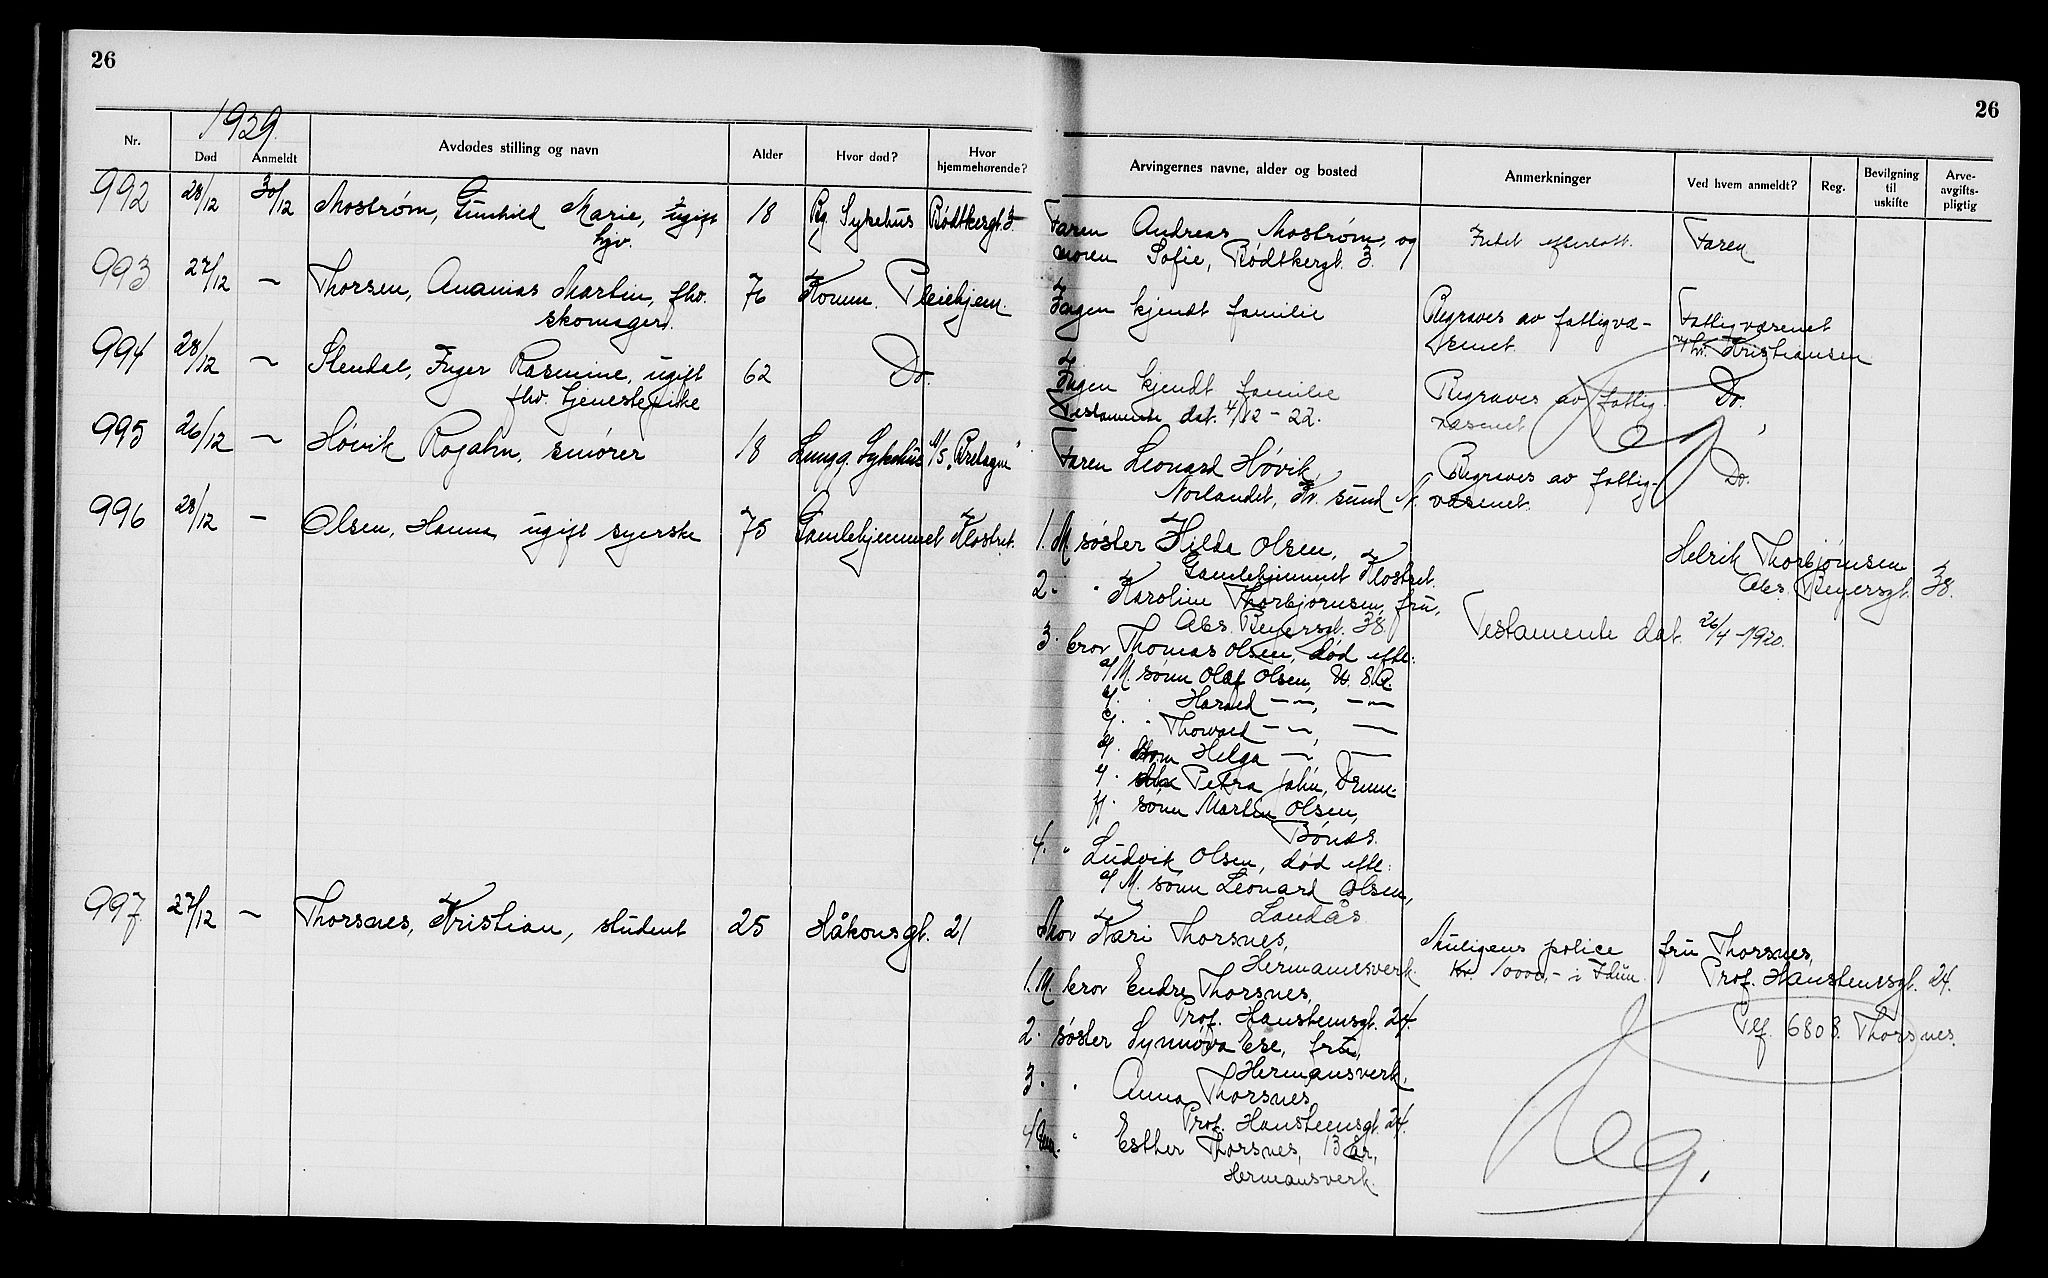 26
26
1939.
Nr.
Død
Anmeldt
Avdødes stilling og navn
Alder
Hvor død?
Hvor hjemmehørende?
Arvingernes navne, alder og bosted
Anmerkninger
Ved hvem anmeldt?
Reg.
Bevilgning til uskifte
Arveavgiftspligtig
992 28/12 30/12 Mostrøm, Gunhild Marie, ugift 18 Bg. Sykehus Rødtkergt. 3 Faren Andreas Mostrøm, og Intet efterlatt. Faren
hjv. moren Sofie, Bødtkergt. 3.
993 27/12 — Thorsen, Ananias Martin, fhv. 76 Komm. Pleiehjem. Ingen kjendt familie Begraves av fattigvæ- Fattigvæsenet
skomager. senet. v/hr. Kristiansen
994 28/12 — Stendal, Inger Rasmine, ugift 62 Do. Ingen kjendt familie Begraves av fattig- Do.
fhv. tjenestepike Testamente dat. 4/12-22. væsenet
Reg
995 26/12 — Høvik Rogahn, smører 18 Lungg. Sykehus D/S "Bretagne" Faren Leonard Høvik Begraves av fattig- Do.
Norlandet, Kr. sund N. væsenet.
996 28/12 — Olsen, Hanna, ugift syerske 75 Gamlehjemmet Klostret. 1. M. søster Hilda Olsen, Helrik Thorbjørnsen
Gamlehjemmet Klostret. Abs. Beyersgt. 38.
2. " Karoline Thorbjørnsen, fru,
Abs. Beyersgt. 38. Testamente dat. 26/4-1920.
3. bror Thomas Olsen, død efte:
a/ M. sønn Olaf Olsen, U.S.A.
b/. " Harald — " —, — " —
c/. " Thorvald — " —, —
d/. Helga —, —
e/. Petra Jahn, Dramm.
f/. sønn Martin Olsen,
Bønes.
4. " Ludvik Olsen, død efte:
a/ M. sønn Leonard Olsen,
Landås
997. 27/12 — Thorsnes, Kristian, student 25 Håkonsgt. 21 Mor Kari Thorsnes, Muligens police fru Thorsnes,
Hermansverk. Kr. 10000,- i Idun. Prof. Hansteensgt. 24.
1. M. bror Endre Thorsnes,
Prof. Hansteensgt. 24. Tlf. 6808. Thorsnes.
2. søster Synnøva Ese, fru,
Hermansverk.
3. " Anna Thorsnes
Prof. Hansteensgt. 24.
4 Um. " Esther Thorsnes, 13 år,
Hermansverk.
Reg.